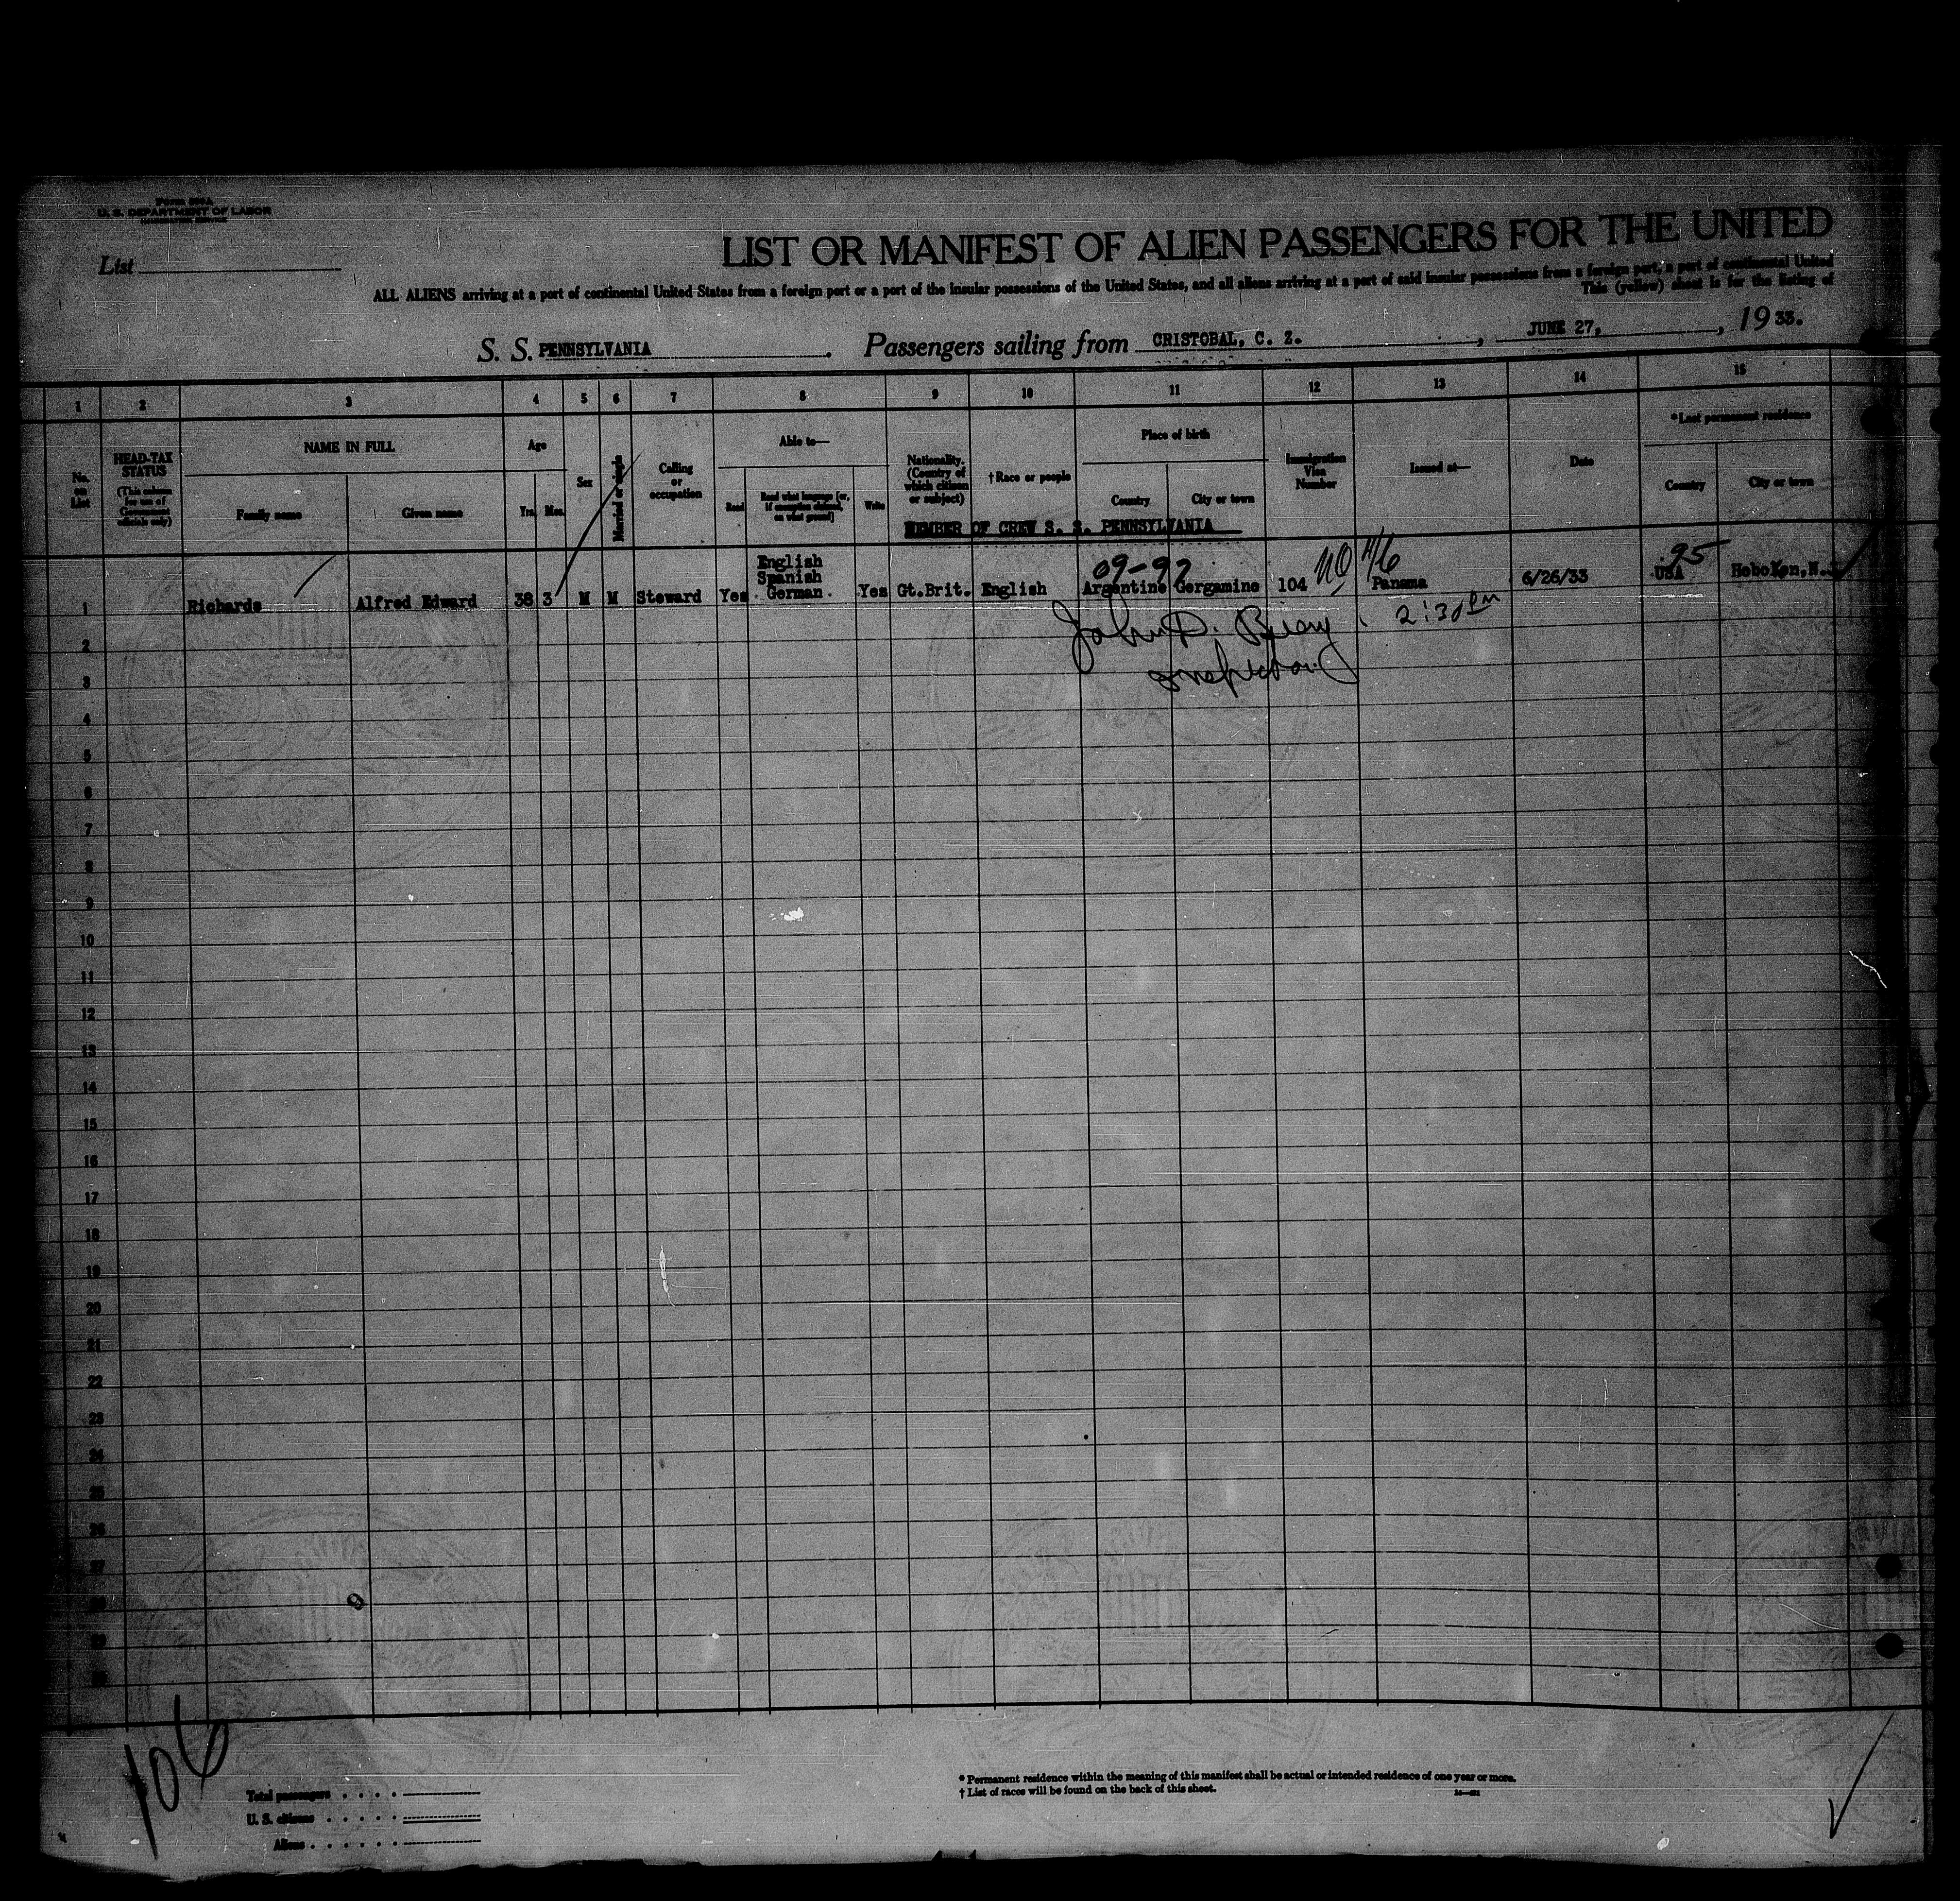 U. S. DEPARTMENT OF LABOR
List
LIST OR MANIFEST OF ALIEN PASSENGERS FOR THE UNITED
ALL ALIENS arriving at a port of continental United States from a foreign port or a port of the insular possessions of the United States, and all aliens arriving at a port of said insular possessions from a foreign port, a port of continental United
This (yellow) sheet is for the listing of
S. S. PENNSYLVANIA. Passengers sailing from CRISTOBAL, C. Z., JUNE 27, 1933.
1 2 3 4 5 6 7 8 9 10 11 12 13 14 15
No. on List
HEAD-TAX STATUS
(This column for use of Government officials only)
NAME IN FULL
Family name
Given name
Age
Yrs. Mos.
Sex
Married or single
Calling or occupation
Able to—
Read
Read what language [or, if exemption claimed, on what ground]
Write
Nationality. (Country of which citizen or subject)
†Race or people
Place of birth
Country
City or town
Immigration Visa Number
Issued at—
Date
*Last permanent residence
Country
City or town
MEMBER OF CREW S. S. PENNSYLVANIA
09-97
95
1 Richards Alfred Edward 38 3 M M Steward Yes English Spanish German Yes Gt.Brit. English Argentine Gergamine 104 Panama 6/26/33 USA Hoboken,N.
John P.
2:30 PM
Inspector
2
3
4
5
6
7
8
9
10
11
12
13
14
15
16
17
18
19
20
21
22
23
24
25
26
27
28
29
30
106
Total passengers
U. S. citizens
Aliens
* Permanent residence within the meaning of this manifest shall be actual or intended residence of one year or more.
† List of races will be found on the back of this sheet.